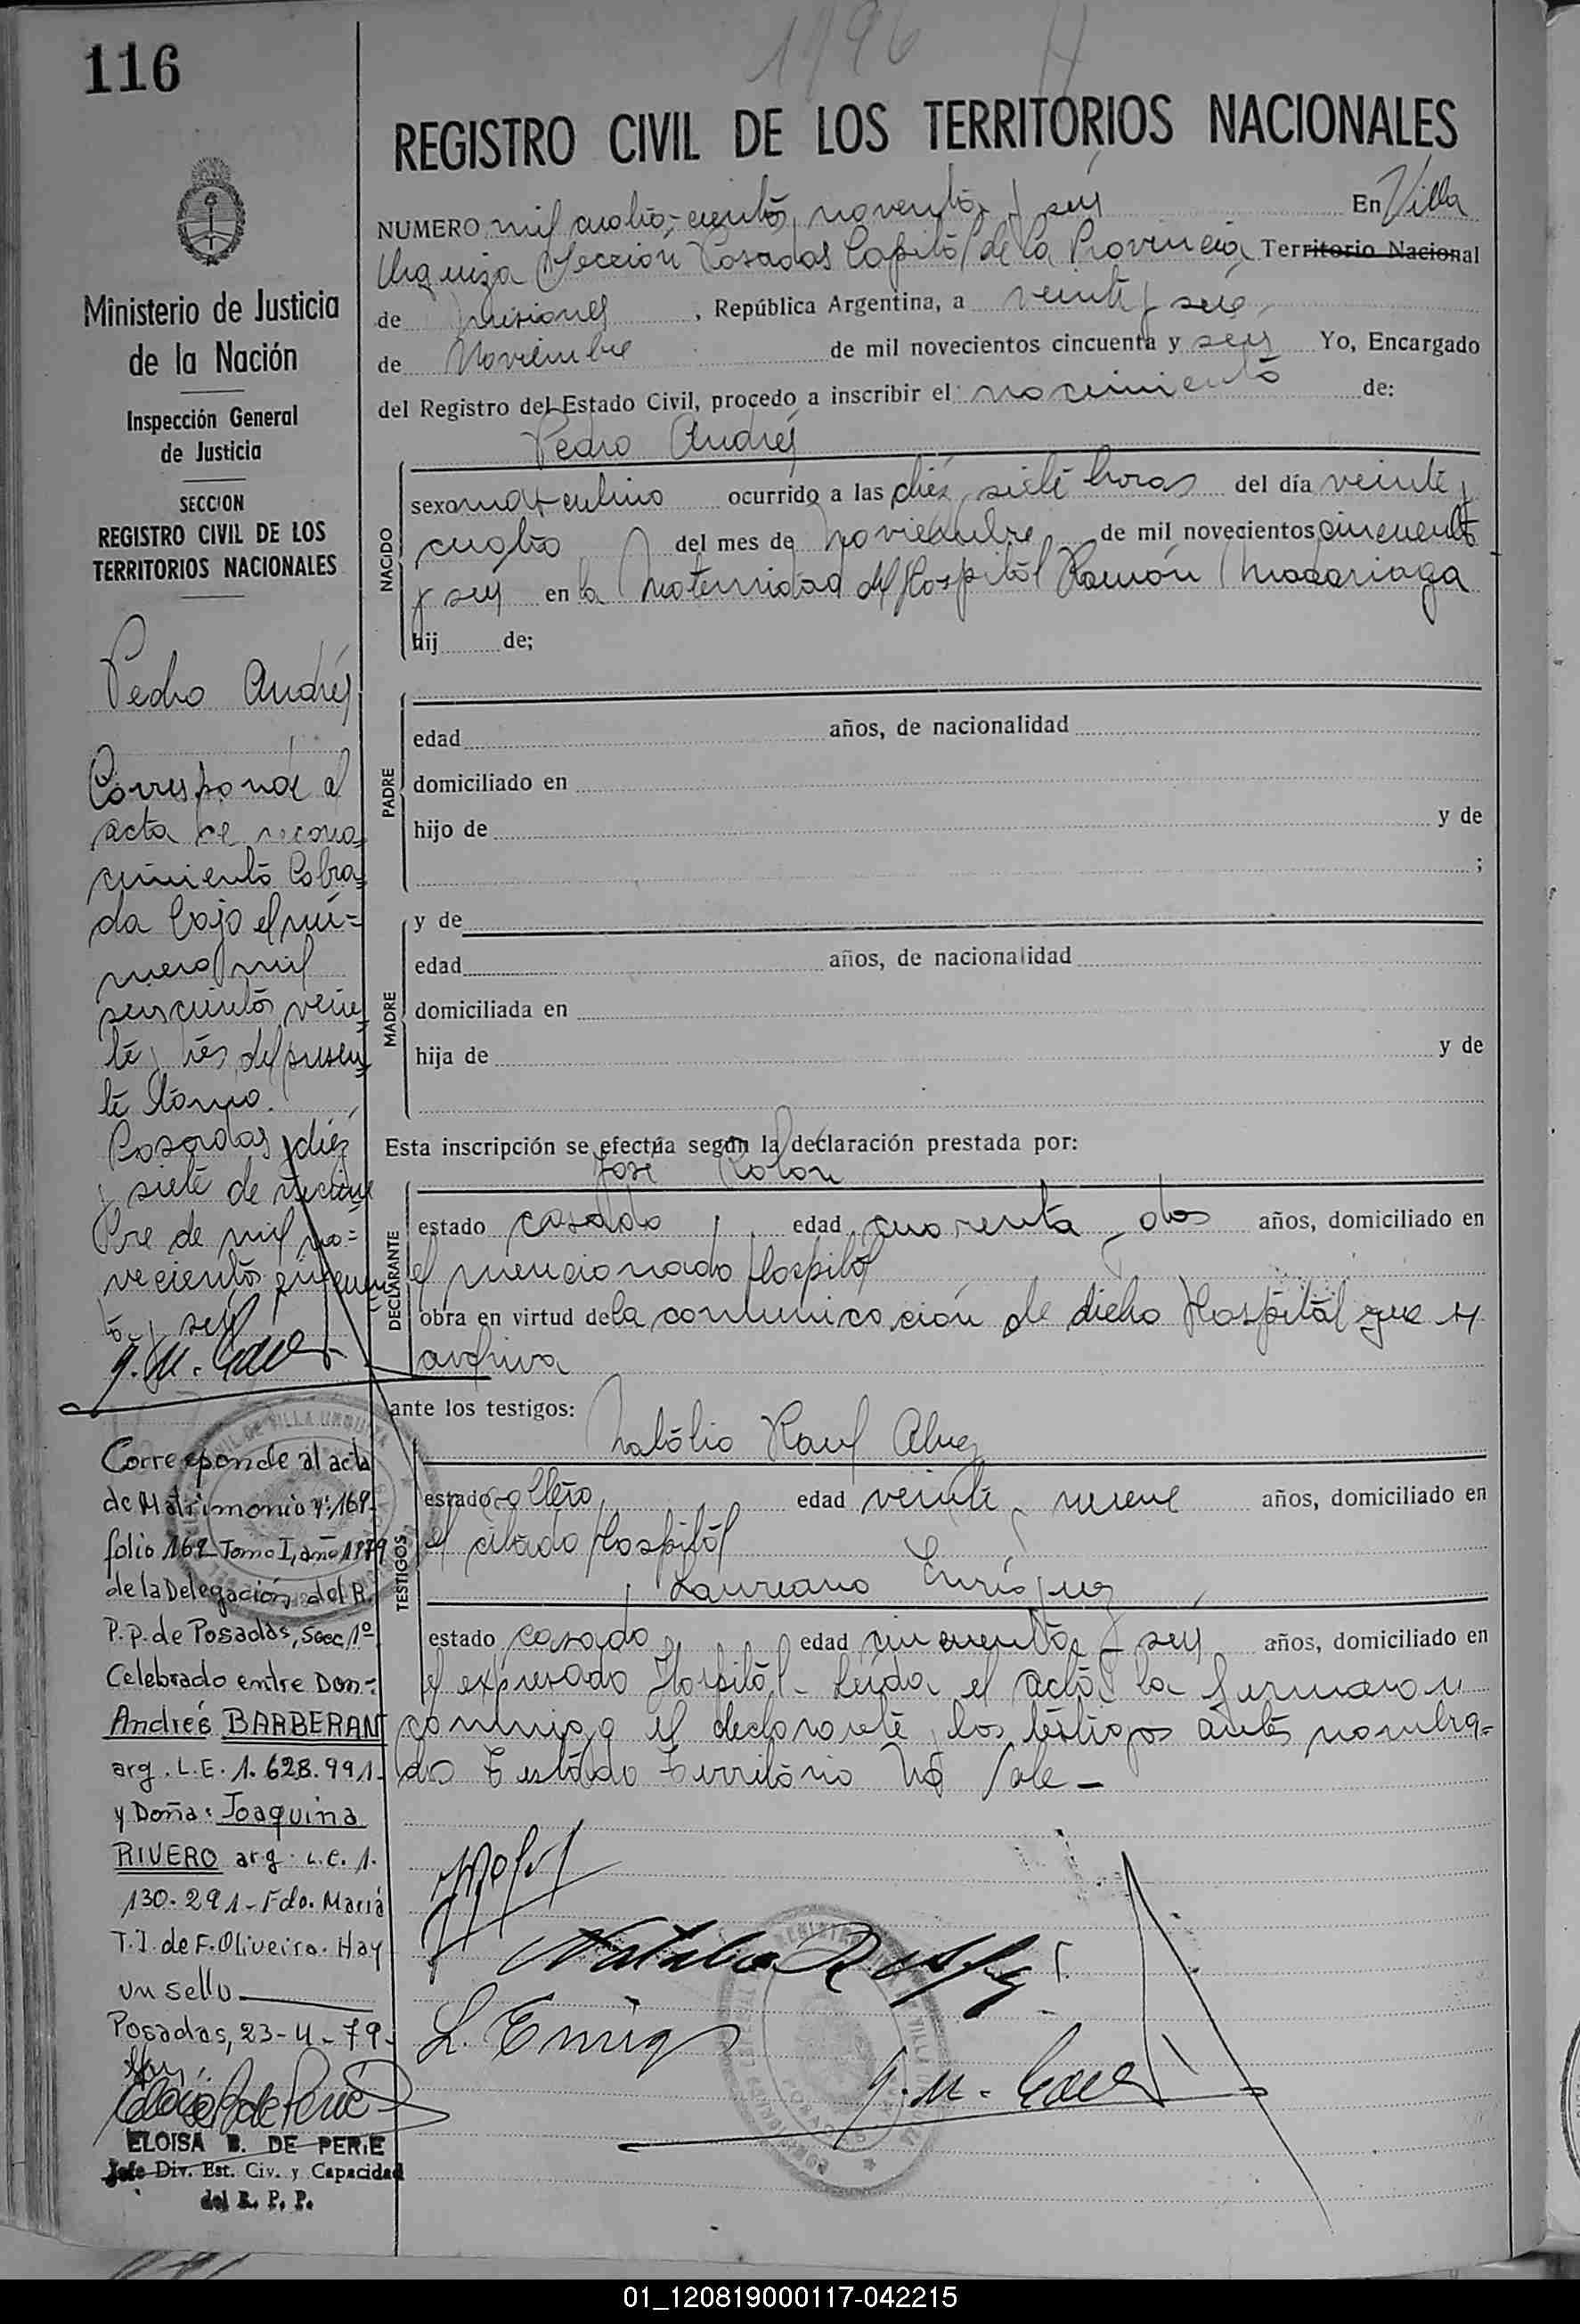 116
REGISTRO CIVIL DE LOS TERRITORIOS NACIONALES
NUMERO mil cuatro-cientos noventa y seis En Villa
Urquiza Sección Posadas Capital de la Provincia Territorio Nacional
de Misiones, República Argentina, a veinte y seis
de Noviembre de mil novecientos cincuenta y seis Yo, Encargado
del Registro del Estado Civil, procedo a inscribir el nacimiento de:
Pedro Andrés
NACIDO
sexo masculino ocurrido a las diez y siete horas del día veinte y
cuatro del mes de Noviembre de mil novecientos cincuenta
y seis en la Maternidad del Hospital Ramón Madariaga
hij de;
PADRE
edad años, de nacionalidad
domiciliado en
hijo de y de
;
MADRE
y de
edad años, de nacionalidad
domiciliada en
hija de y de
Esta inscripción se efectúa según la declaración prestada por:
José Colón
DECLARANTE
estado casado edad cuarenta y dos años, domiciliado en
el mencionado Hospital
obra en virtud de la comunicación de dicho Hospital que se
archiva
ante los testigos:
Natálio Raul Alvez
TESTIGOS
estado soltero edad veinte y nueve años, domiciliado en
el citado Hospital
Laureano Enriquez
estado casado edad cincuenta y seis años, domiciliado en
el expresado Hospital - Leída el acta la firmaron
conmigo el declarante y los testigos antes nombra=
dos Testado Territorio No Vale -
Natalio R Alvez
L. Enriq
Ministerio de Justicia
de la Nación
Inspección General
de Justicia
SECCION
REGISTRO CIVIL DE LOS
TERRITORIOS NACIONALES
Pedro Andrés
Corresponde al
acta de recono=
cimiento labra=
da bajo el nú=
mero mil
seiscientos vein=
te y tres del presen=
te tomo.
Posadas, diez
y siete de diciem=
bre de mil no=
vecientos cincuen=
ta y seis
Corresponde al acta
de Matrimonio Nº 169
folio 162 Tomo I, año 1979
de la Delegación del R.
P.P. de Posadas, Secc 1º
Celebrado entre Don:
Andrés BARBERAN
arg. L.E. 1.628.991.
y Doña: Joaquina
RIVERO arg. L.C. 1.
130.291 - Fdo. María
T.I. de F. Oliveira. Hay
un sello
Posadas, 23-4-79-
ELOISA B. DE PERIE
Jefe Div. Est. Civ. y Capacidad
del R. P. P.
01_120819000117-042215